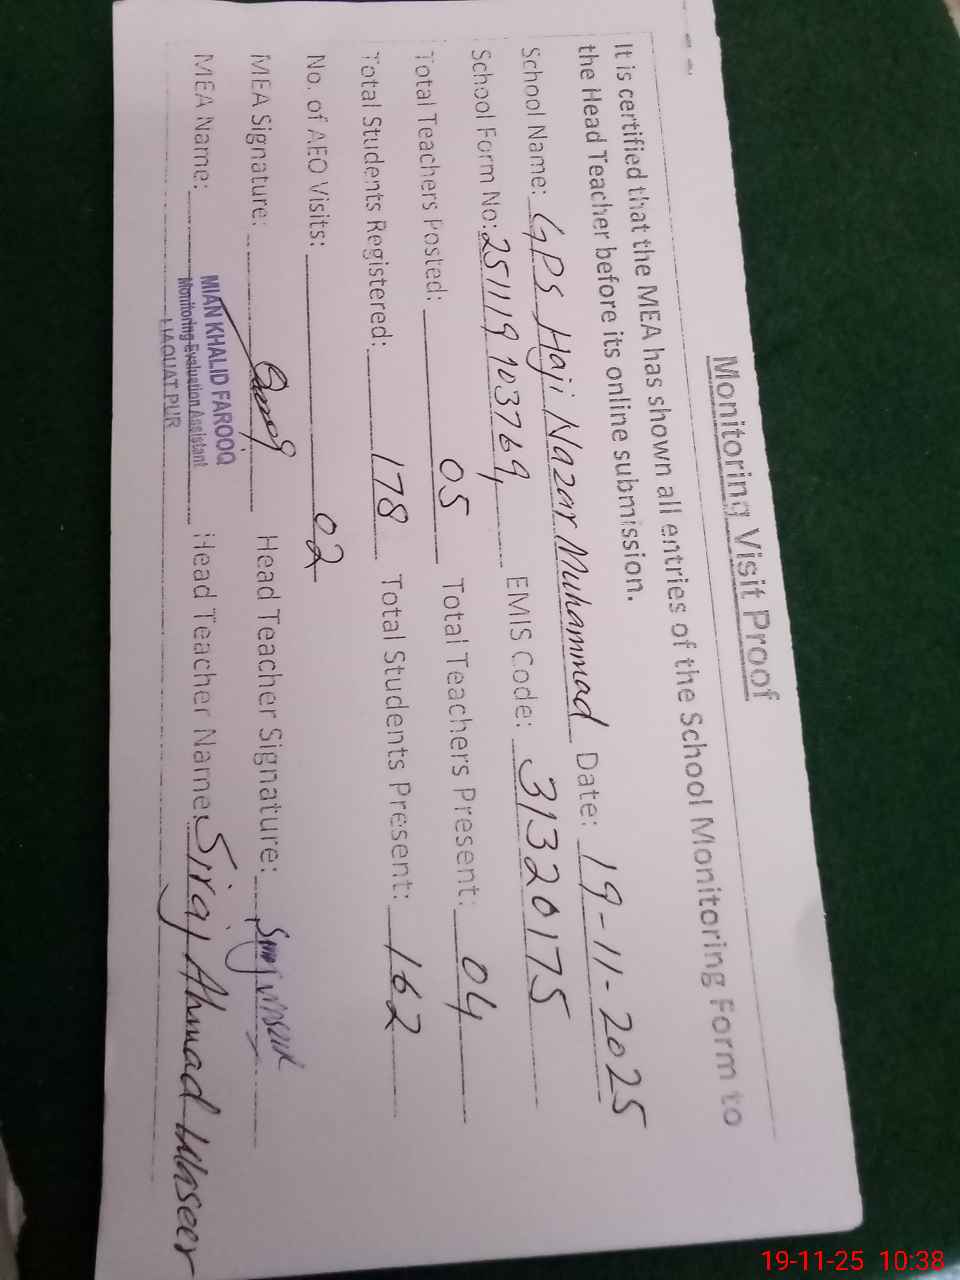 Monitoring Visit Proof
It is certified that the MEA has shown all entries of the School Monitoring Form to
the Head Teacher before its online submission.
School Name: GPS Haji Nazar Muhammad Date: 19-11-2025
School Form No: 251119103769, EMIS Code: 31320175
Total Teachers Posted: 05 Total Teachers Present: 04
Total Students Registered: 178 Total Students Present: 162
No. of AEO Visits: 02
MEA Signature: Head Teacher Signature:
MEA Name: MIAN KHALID FAROOQ Head Teacher Name: Siraj Ahmad Waseer
Monitoring Evaluation Assistant
LIAQUAT PUR
19-11-25 10:38